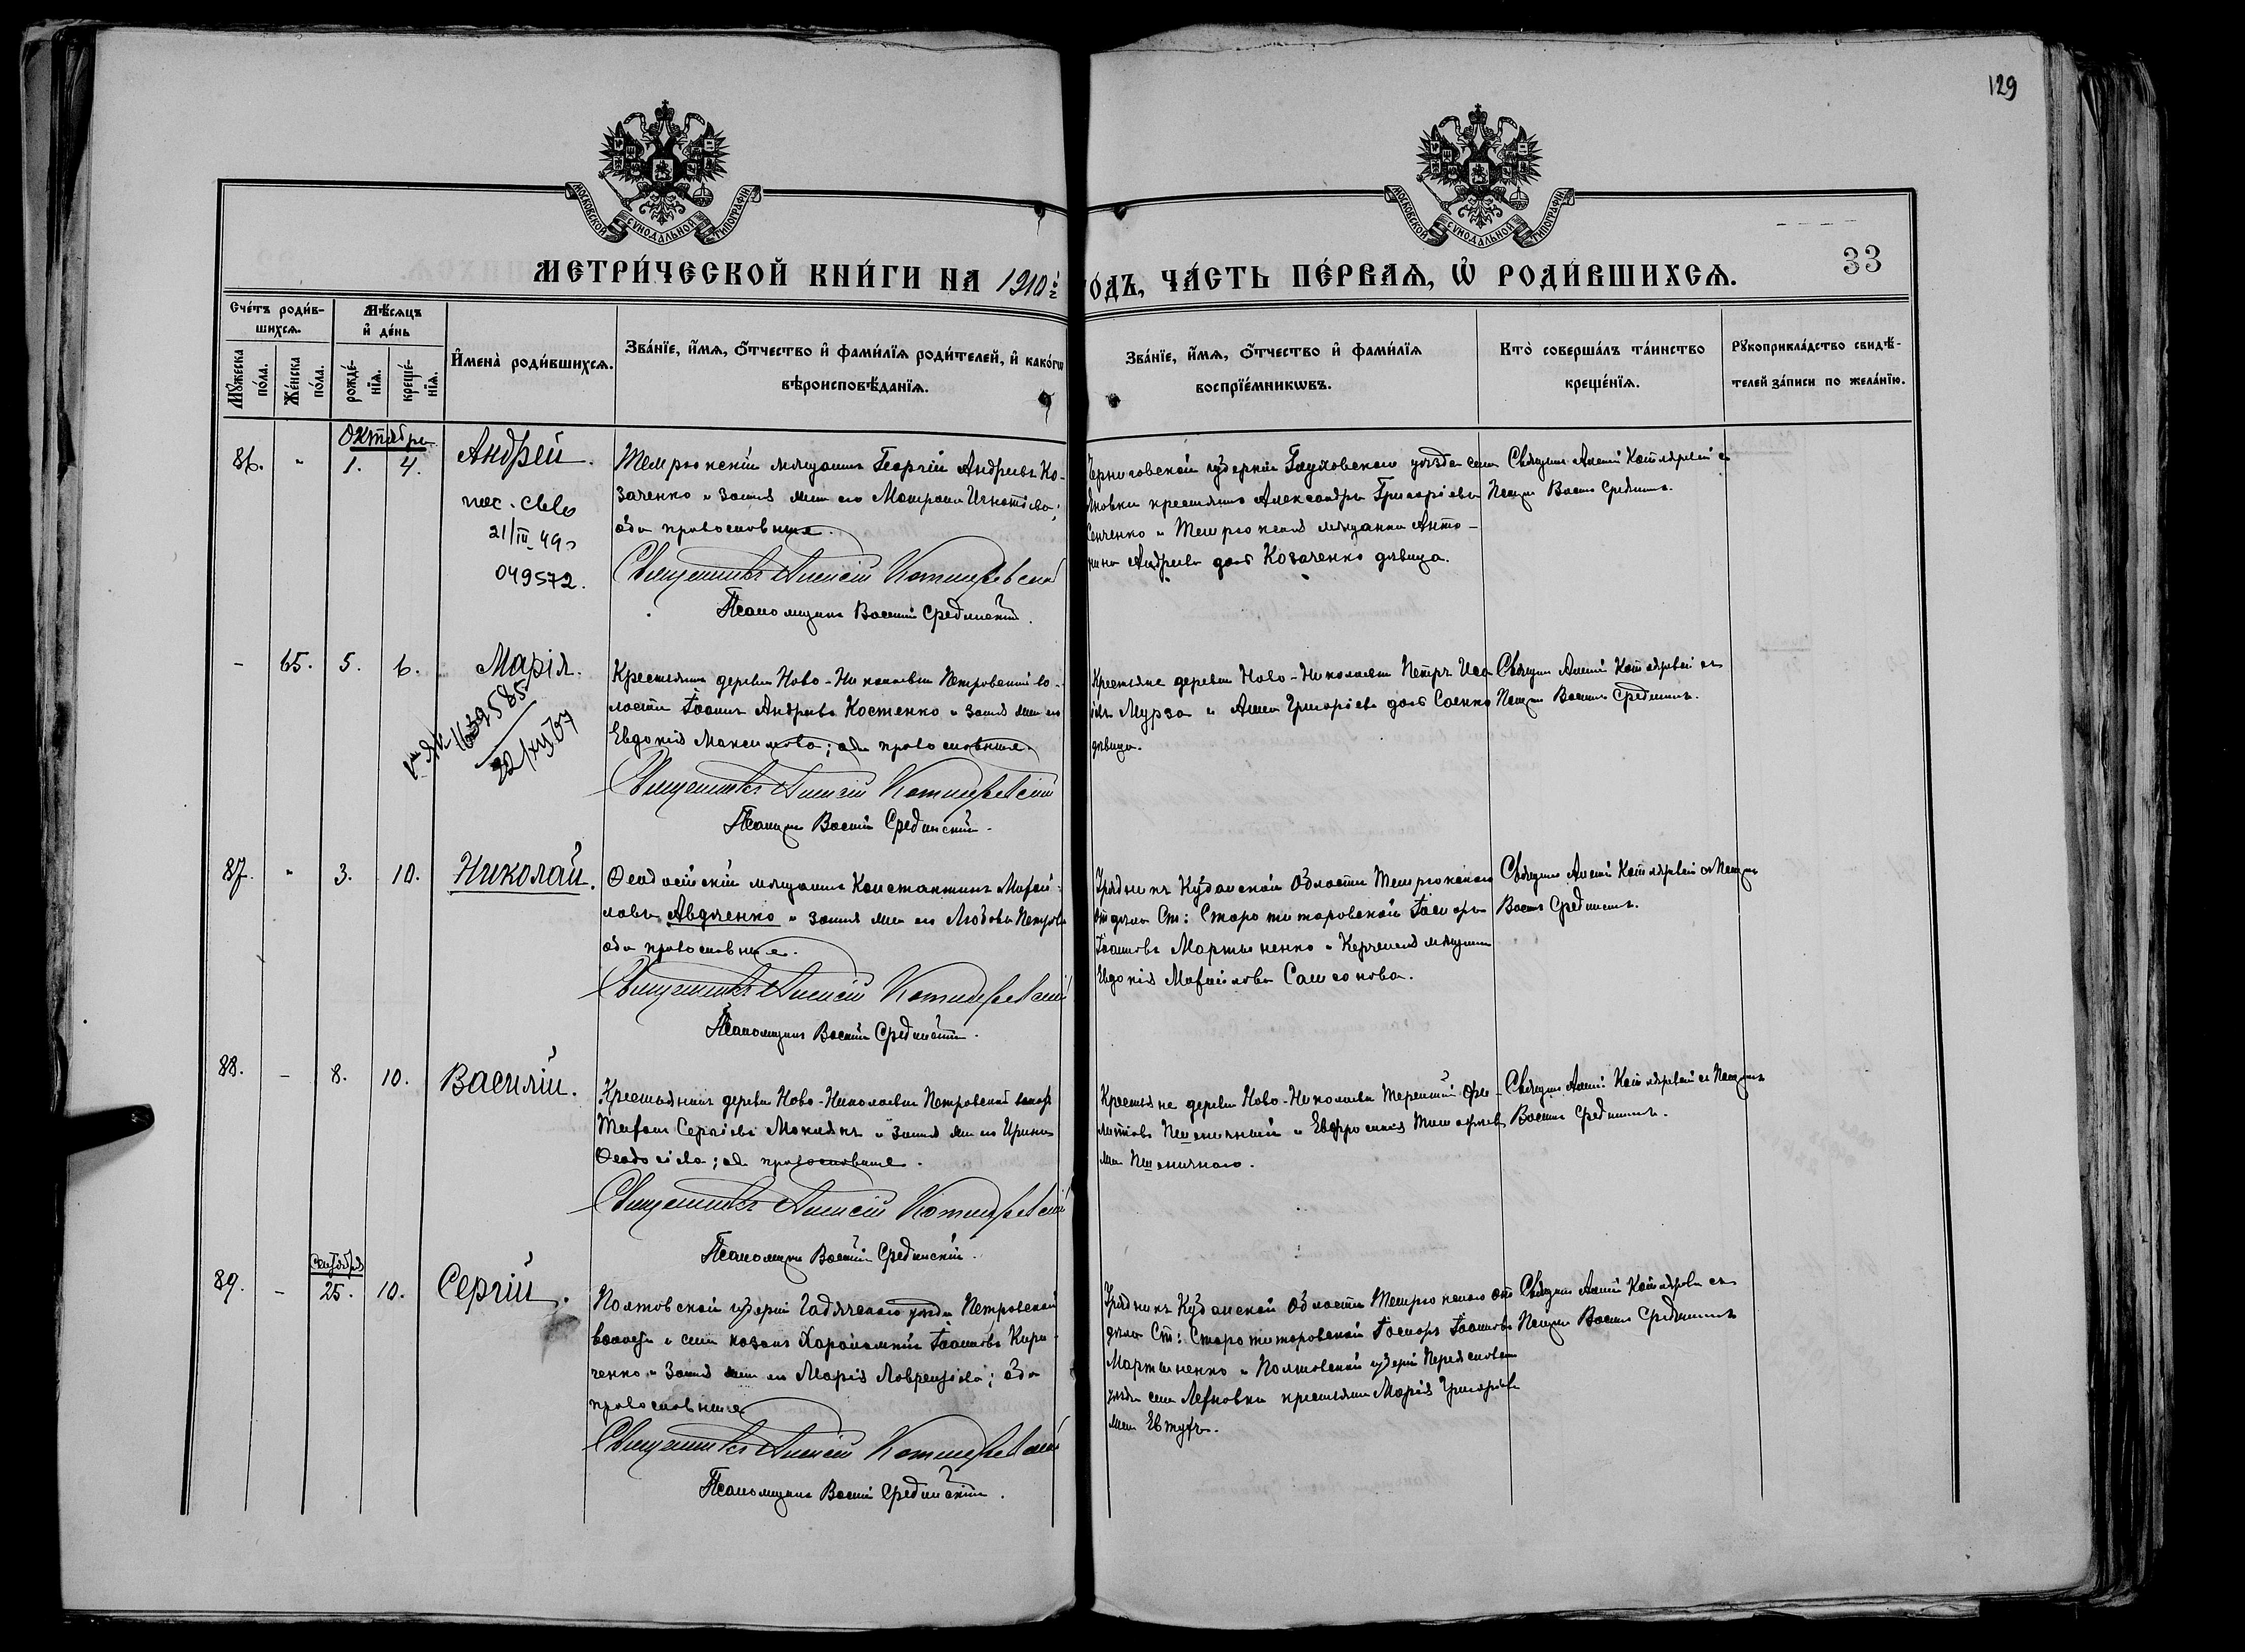 129
МОСКОВСКОЙ СѴНОДАЛЬНОЙ ТИПОГРАФІИ
МОСКОВСКОЙ СѴНОДАЛЬНОЙ ТИПОГРАФІИ
33
МЕТРИ́ЧЕСКОЙ КНИ́ГИ НА 1910 г.
ОДЪ, ЧА́СТЬ ПЕ́РВАѦ, Ѿ РОДИ́ВШИХСѦ.
Сче́тъ роди́в-
шихсѧ.
Мѣ́сѧцъ
и҆ де́нь
Мꙋ́жеска
по́ла.
Же́нска
по́ла.
рожде́-
нїѧ.
креще́-
нїѧ.
И҆мена̀ роди́вшихсѧ.
Зва́нїе, и҆́мѧ, ѻ҆́тчество и҆ фами́лїѧ роди́телей, и҆ како́гѡ
вѣроисповѣ́данїѧ.
Зва́нїе, и҆́мѧ, ѻ҆́тчество и҆ фами́лїѧ
воспрїе́мникѡвъ.
Кто̀ соверша́лъ та́инство
креще́нїѧ.
Рꙋкоприкла́дство свидѣ́-
телей за́писи по жела́нїю.
Октября
86. " 1. 4. Андрей.
21/III 49
049572.
Темрюкскій мѣщанинъ Георгій Андреевъ Ко-
заченко и законная жена его Матрона Игнатіева;
оба православные.
Священникъ Алексій Котляревскій
Псаломщикъ Василій Срединскій.
Черниговской губерніи Глуховскаго уѣзда села
крестьянинъ Александръ Григоріевъ
Сенченко и Темрюкская мѣщанка Анто-
нина Андреева дочь Козаченко дѣвица.
Священникъ Алексій Котляревскій съ
Псаломщ. Васил. Срединскимъ.
- 65. 5. 6. Марія.
1639585
Крестьянинъ деревни Ново-Николаевки Петровской во-
лости Іоаннъ Андреевъ Костенко и законная жена его
Евдокія Максимова; оба православные.
Священникъ Алексій Котляревскій
Псаломщикъ Василій Срединскій.
Крестьяне деревни Ново-Николаевки Петръ
Мурза и Анна Григоріева дочь Саенко
дѣвица.
Священникъ Алексій Котляревскій съ
Псаломщ. Васил. Срединскимъ.
87. " 3. 10. Николай.
Ѳеодосійскій мѣщанинъ Константинъ Михаи-
ловъ Авдѣенко и законная жена его Любовь Петрова
оба православные.
Священникъ Алексій Котляревскій
Псаломщикъ Василій Срединскій.
Урядникъ Кубанской области Темрюкскаго
отдѣла Ст: Старотитаровской
Іоанновъ Мартыненко и Керченская мѣщанка
Евдокія Михаилова Самсонова.
Священникъ Алексій Котляревскій съ Псаломщ.
Васил. Срединскимъ.
88. - 8. 10. Василій.
Крестьянинъ деревни Ново-Николаевки Петровской волости
Сергіевъ и законная жена его Ирина
Ѳеодосіева; оба православные.
Священникъ Алексій Котляревскій
Псаломщикъ Василій Срединскій.
Крестьяне деревни Ново-Николаевки Терентій
Пшеничный и Евфросинія
Пшеничного.
Священникъ Алексій Котляревскій съ Псаломщ.
Васил. Срединскимъ.
Сентября
89. - 25. 10. Сергій.
Полтавской губерніи Гадячскаго уѣзда Петровской
волости и села козакъ Харлампій Іоанновъ Кири-
ченко и законная жена его Марія Лаврентіева; оба
православные
Священникъ Алексій Котляревскій
Псаломщикъ Василій Срединскій.
Урядникъ Кубанской области Темрюкскаго от-
дѣла Ст: Старотитаровской Іоанновъ
Мартыненко и Полтавской губерніи Переяславск.
уѣзда села крестьянка Марія Григоріева
Евтухъ.
Священникъ Алексій Котляревскій съ
Псаломщ. Васил. Срединскимъ